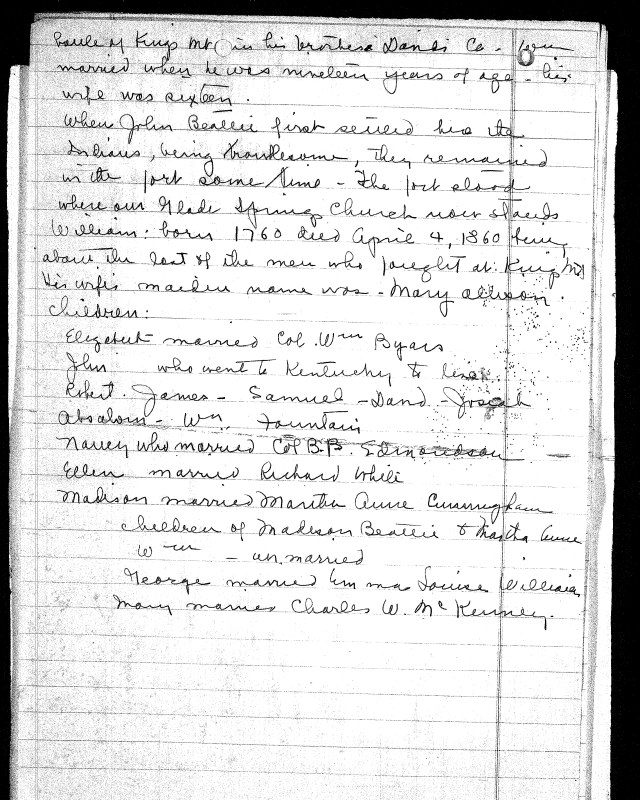 Battle of Kings Mt in his brothers Davids Co - Wm
married when he was nineteen years of age - his
wife was sixteen.
When John Beattie first settled here the
Indians, being troublesome, they remained
in the fort some time - The fort stood
where our Glade Springs Church now stands
William: born 1760 died April 4, 1860 being
about the last of the men who fought at Kings Mt
His wifes maiden name was - Mary Allison.
Children:
Elizabeth married Col. Wm Byars
John who went to Kentucky to live.
Robert. James - Samuel - David - Joseph
Absalom - Wm. Fountain
Nancy who married Col B.B. Edmondson
Ellen married Richard White
Madison married Martha Anne Cunningham
children of Madison Beattie & Martha Anne
Wm - unmarried
George married Emma Louise Williams
Mary married Charles W. McKenney.